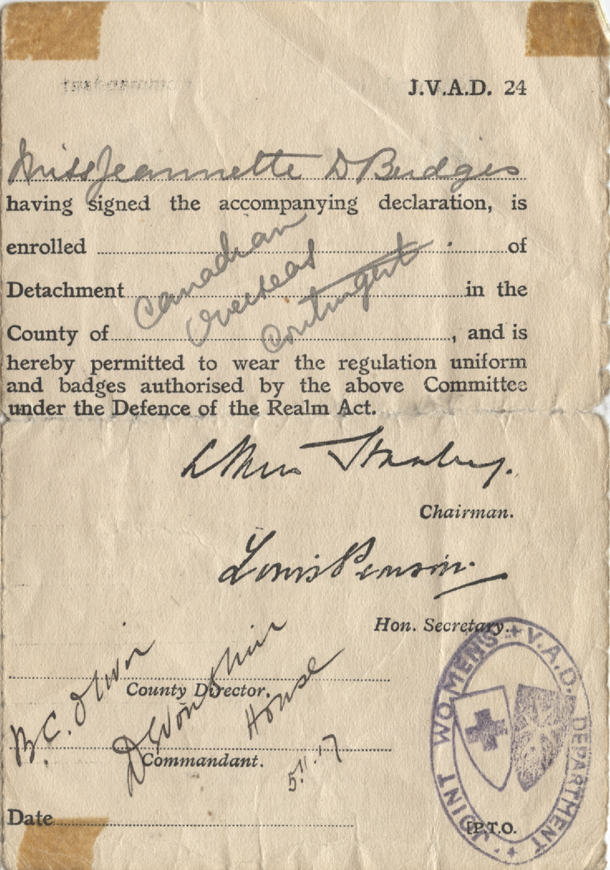 J.V.A.D. 24
Miss Jeannette D Bridges
having signed the accompanying declaration, is
enrolled of
Canadian
Detachment in the
Overseas
County of , and is
Contingent
hereby permitted to wear the regulation uniform
and badges authorised by the above Committee
under the Defence of the Realm Act.
Chairman.
Louis Penson.
Hon. Secretary.
County Director.
B.C. Oliver
Devonshire
House
Commandant.
5.11.17
Date
[P.T.O.
JOINT WOMEN'S V.A.D. DEPARTMENT